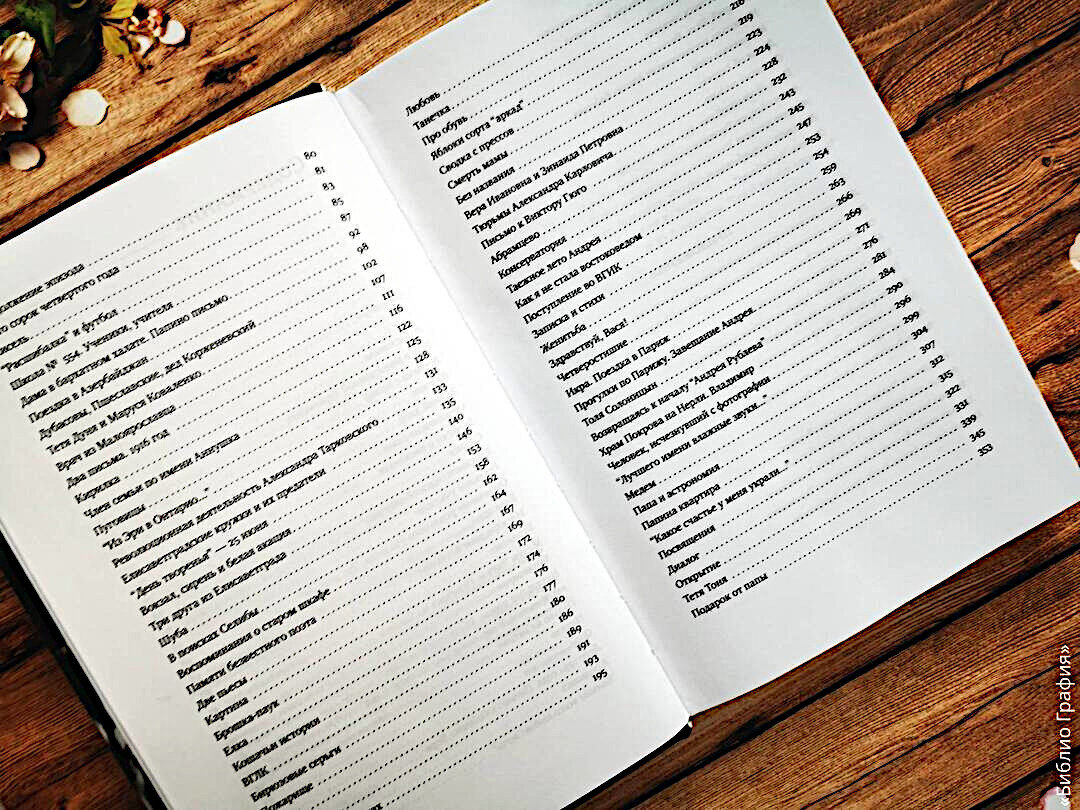 олжение эпизода 80
о сорок четвертого года 81
исель 83
"Расшибалка" и футбол 85
Школа № 554. Ученики, учителя 87
Дама в бархатном халате. Папино письмо 92
Поездка в Азербайджан 98
Дубасовы, Пшеславские, дед Корженевский 102
Тетя Дуня и Маруся Коваленко 107
Врач из Малоярославца 111
Два письма. 1926 год 116
Кирилка 122
Член семьи по имени Аннушка 125
Пуговицы 128
"Из Эри в Онтарио..." 131
Революционная деятельность Александра Тарковского 133
Елисаветградские кружки и их предатели 135
"День творенья" — 25 июня 140
Вокзал, сирень и белая акация 146
Три друга из Елисаветграда 153
Шуба 158
В поисках Селибы 162
Воспоминания о старом шкафе 164
Памяти безвестного поэта 167
Две пьесы 169
Картина 172
Брошка-паук 174
Елка 176
Кошачьи истории 177
ВГЛК 180
Бирюзовые серьги 186
Пожарище 189
191
193
195
Любовь
Танечка
Про обувь
Яблоки сорта "аркад"
Сводка с прессов 216
Смерть мамы 219
Без названия 223
Вера Ивановна и Зинаида Петровна 224
Тюрьмы Александра Карловича 228
Письмо к Виктору Гюго 232
Абрамцево 243
Консерватория 245
Таежное лето Андрея 247
Как я не стала востоковедом 253
Поступление во ВГИК 254
Записка и стихи 259
Женитьба 263
Здравствуй, Вася! 266
Четверостишие 269
Икра. Поездка в Париж 271
Прогулки по Парижу. Завещание Андрея 276
Толя Солоницын 281
Возвращаясь к началу "Андрея Рублева" 284
Храм Покрова на Нерли. Владимир 290
Человек, исчезнувший с фотографии 296
"Лучшего имени влажные звуки..." 299
Медем 304
Папа и астрономия 307
Папина квартира 312
"Какое счастье у меня украли..." 315
Посвящения 322
Диалог 331
Открытие 339
Тетя Тоня 345
Подарок от папы 353
«Библио Графия»